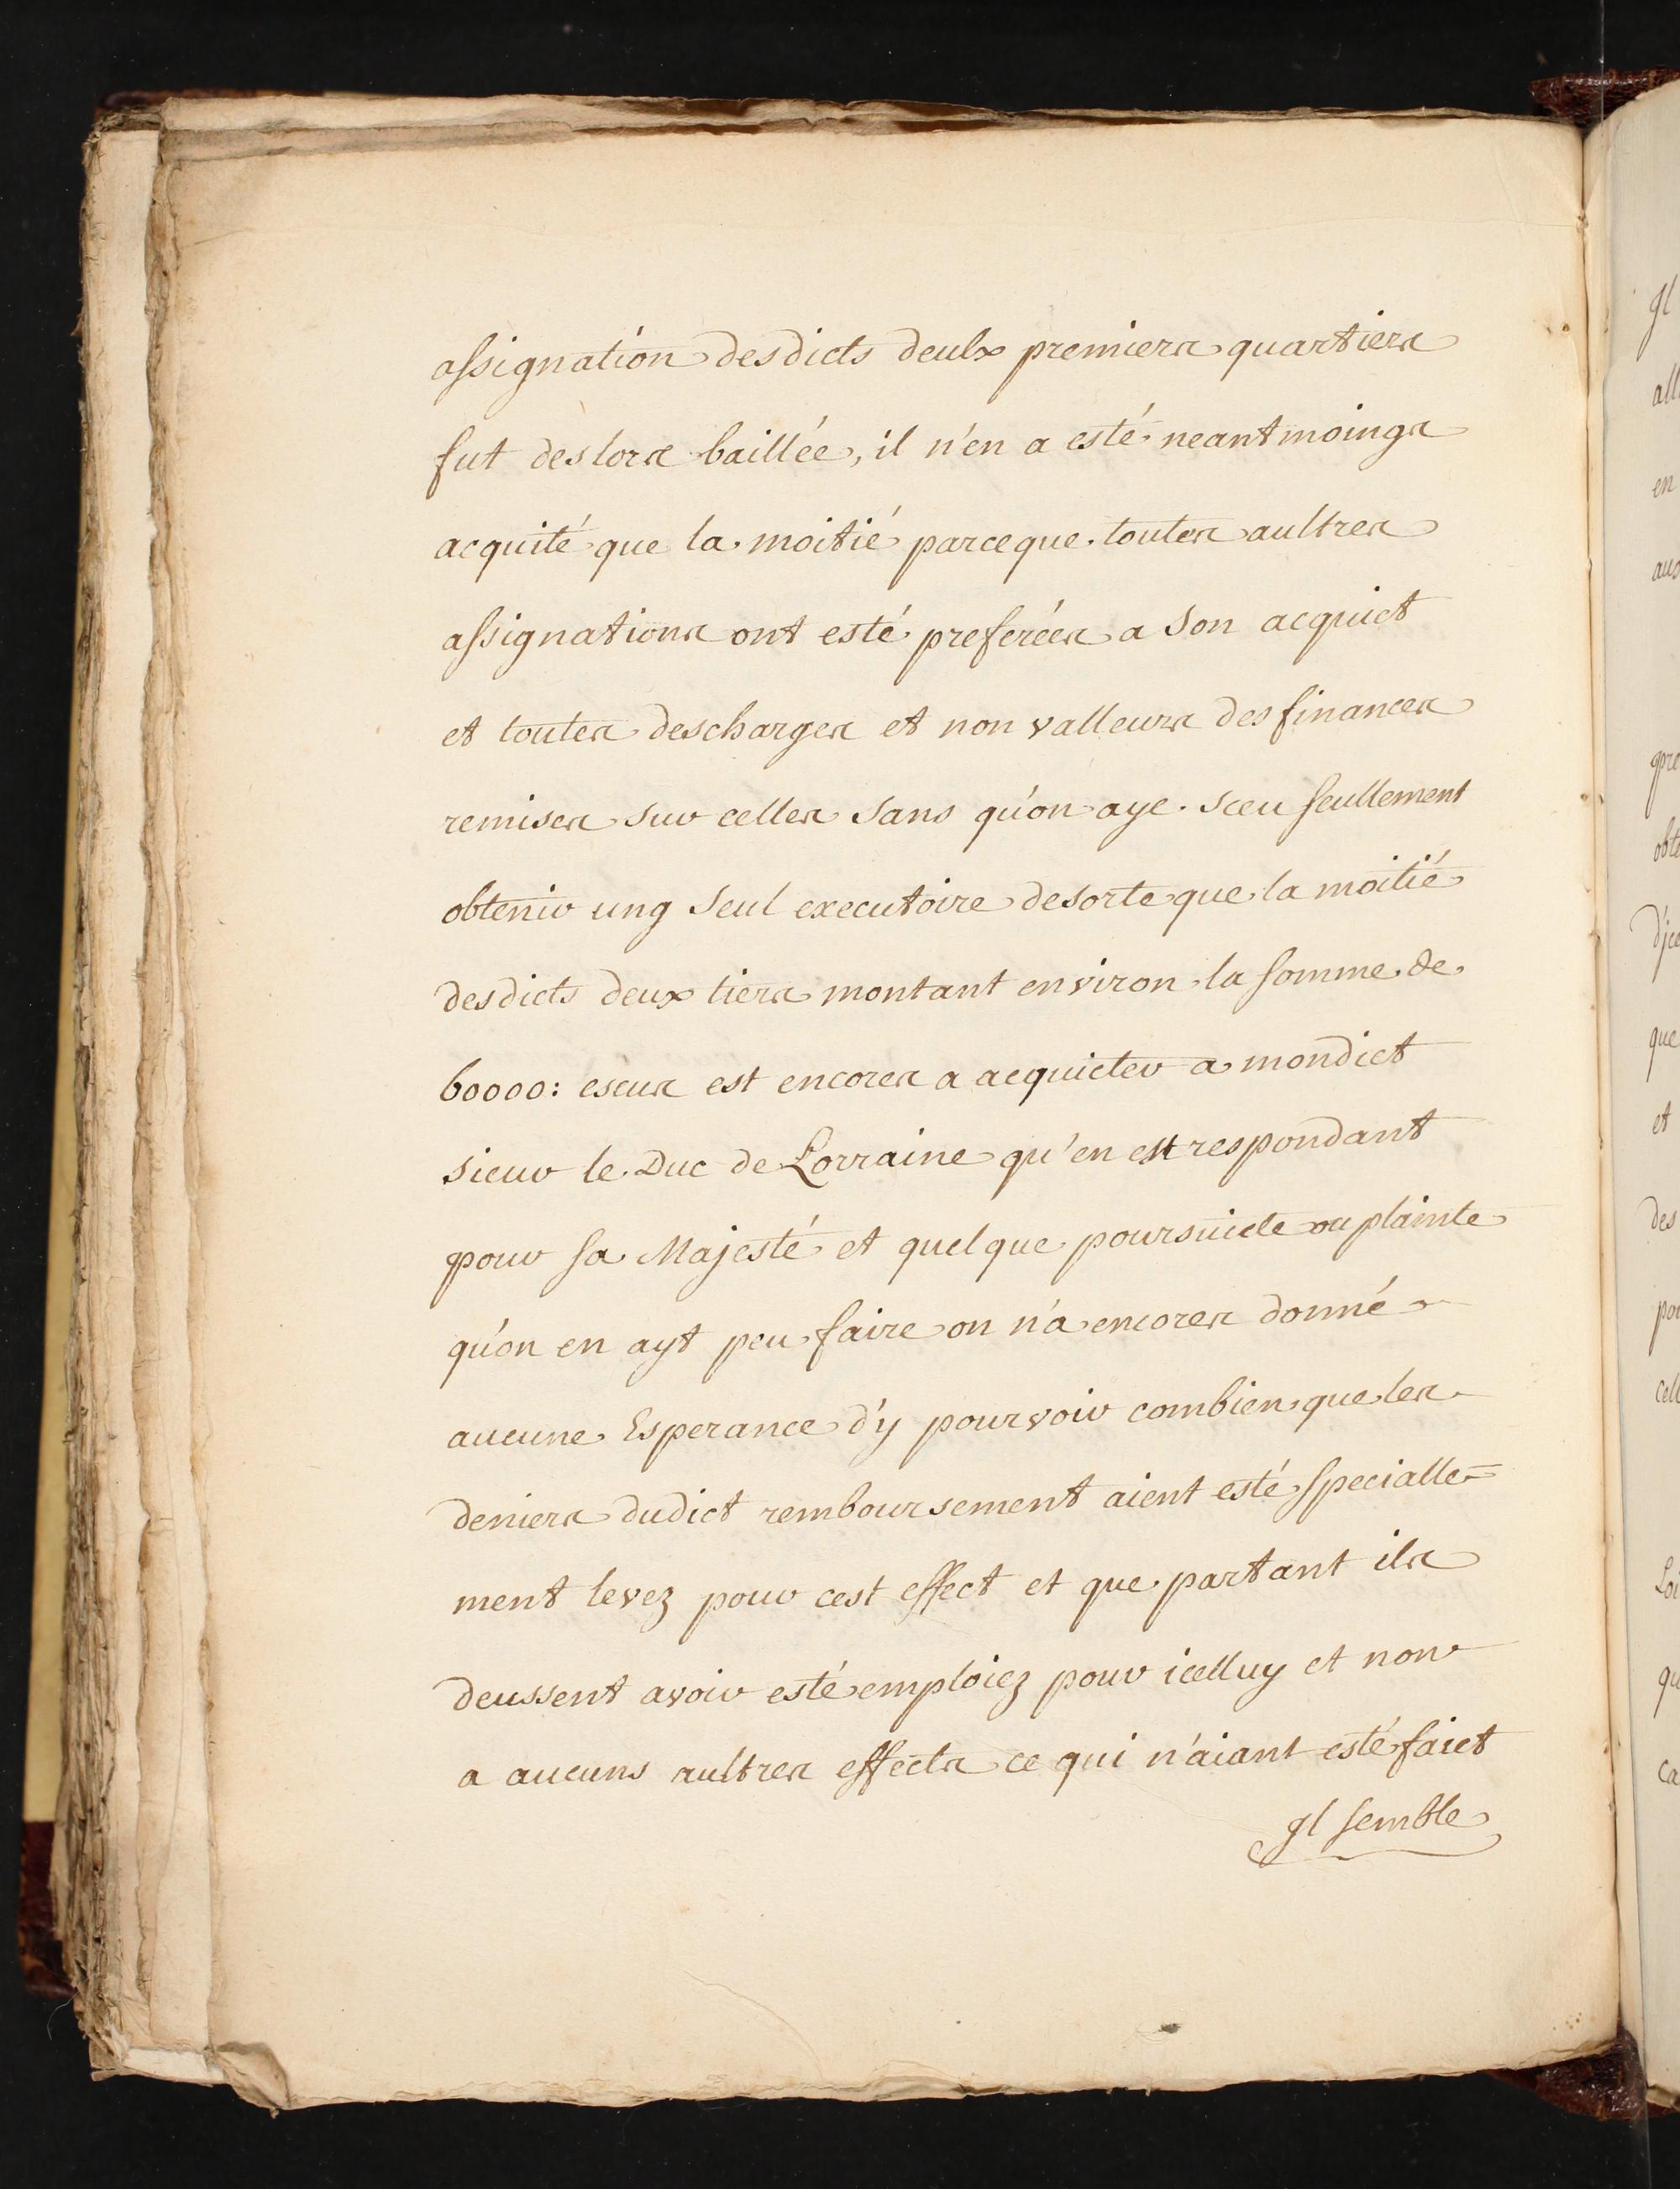 assignation desdicts deulx premiers quartiers
fut deslors baillée, il n'en a esté neantmoings
acquité que la moitié parceque toutes aultres
assignations ont esté preferées a son acquict
et toutes descharges et non valleurs des finances
remises sur celles sans qu'on aye sceu seullement
obtenir ung seul executoire desorte que la moitié
desdicts deux tiers montant environ la somme de
60000: escus est encores a acquicter a mondict
sieur le Duc de Lorraine qu'en est respondant
pour sa Majesté et quelque poursuicte ou plainte
qu'on en ayt peu faire on n'a encores donné
aucune Esperance d'y pourvoir combien que les
deniers dudict remboursement aient esté specialle=
ment levez pour cest effect et que partant ils
deussent avoir esté emploiez pour icelluy et non
a aucuns aultres effects ce qui n'aiant esté faict
Jl semble
Jl
all
en
au
pre
obte
d'jce
que
et
des
po
cell
Loi
qu
Ca